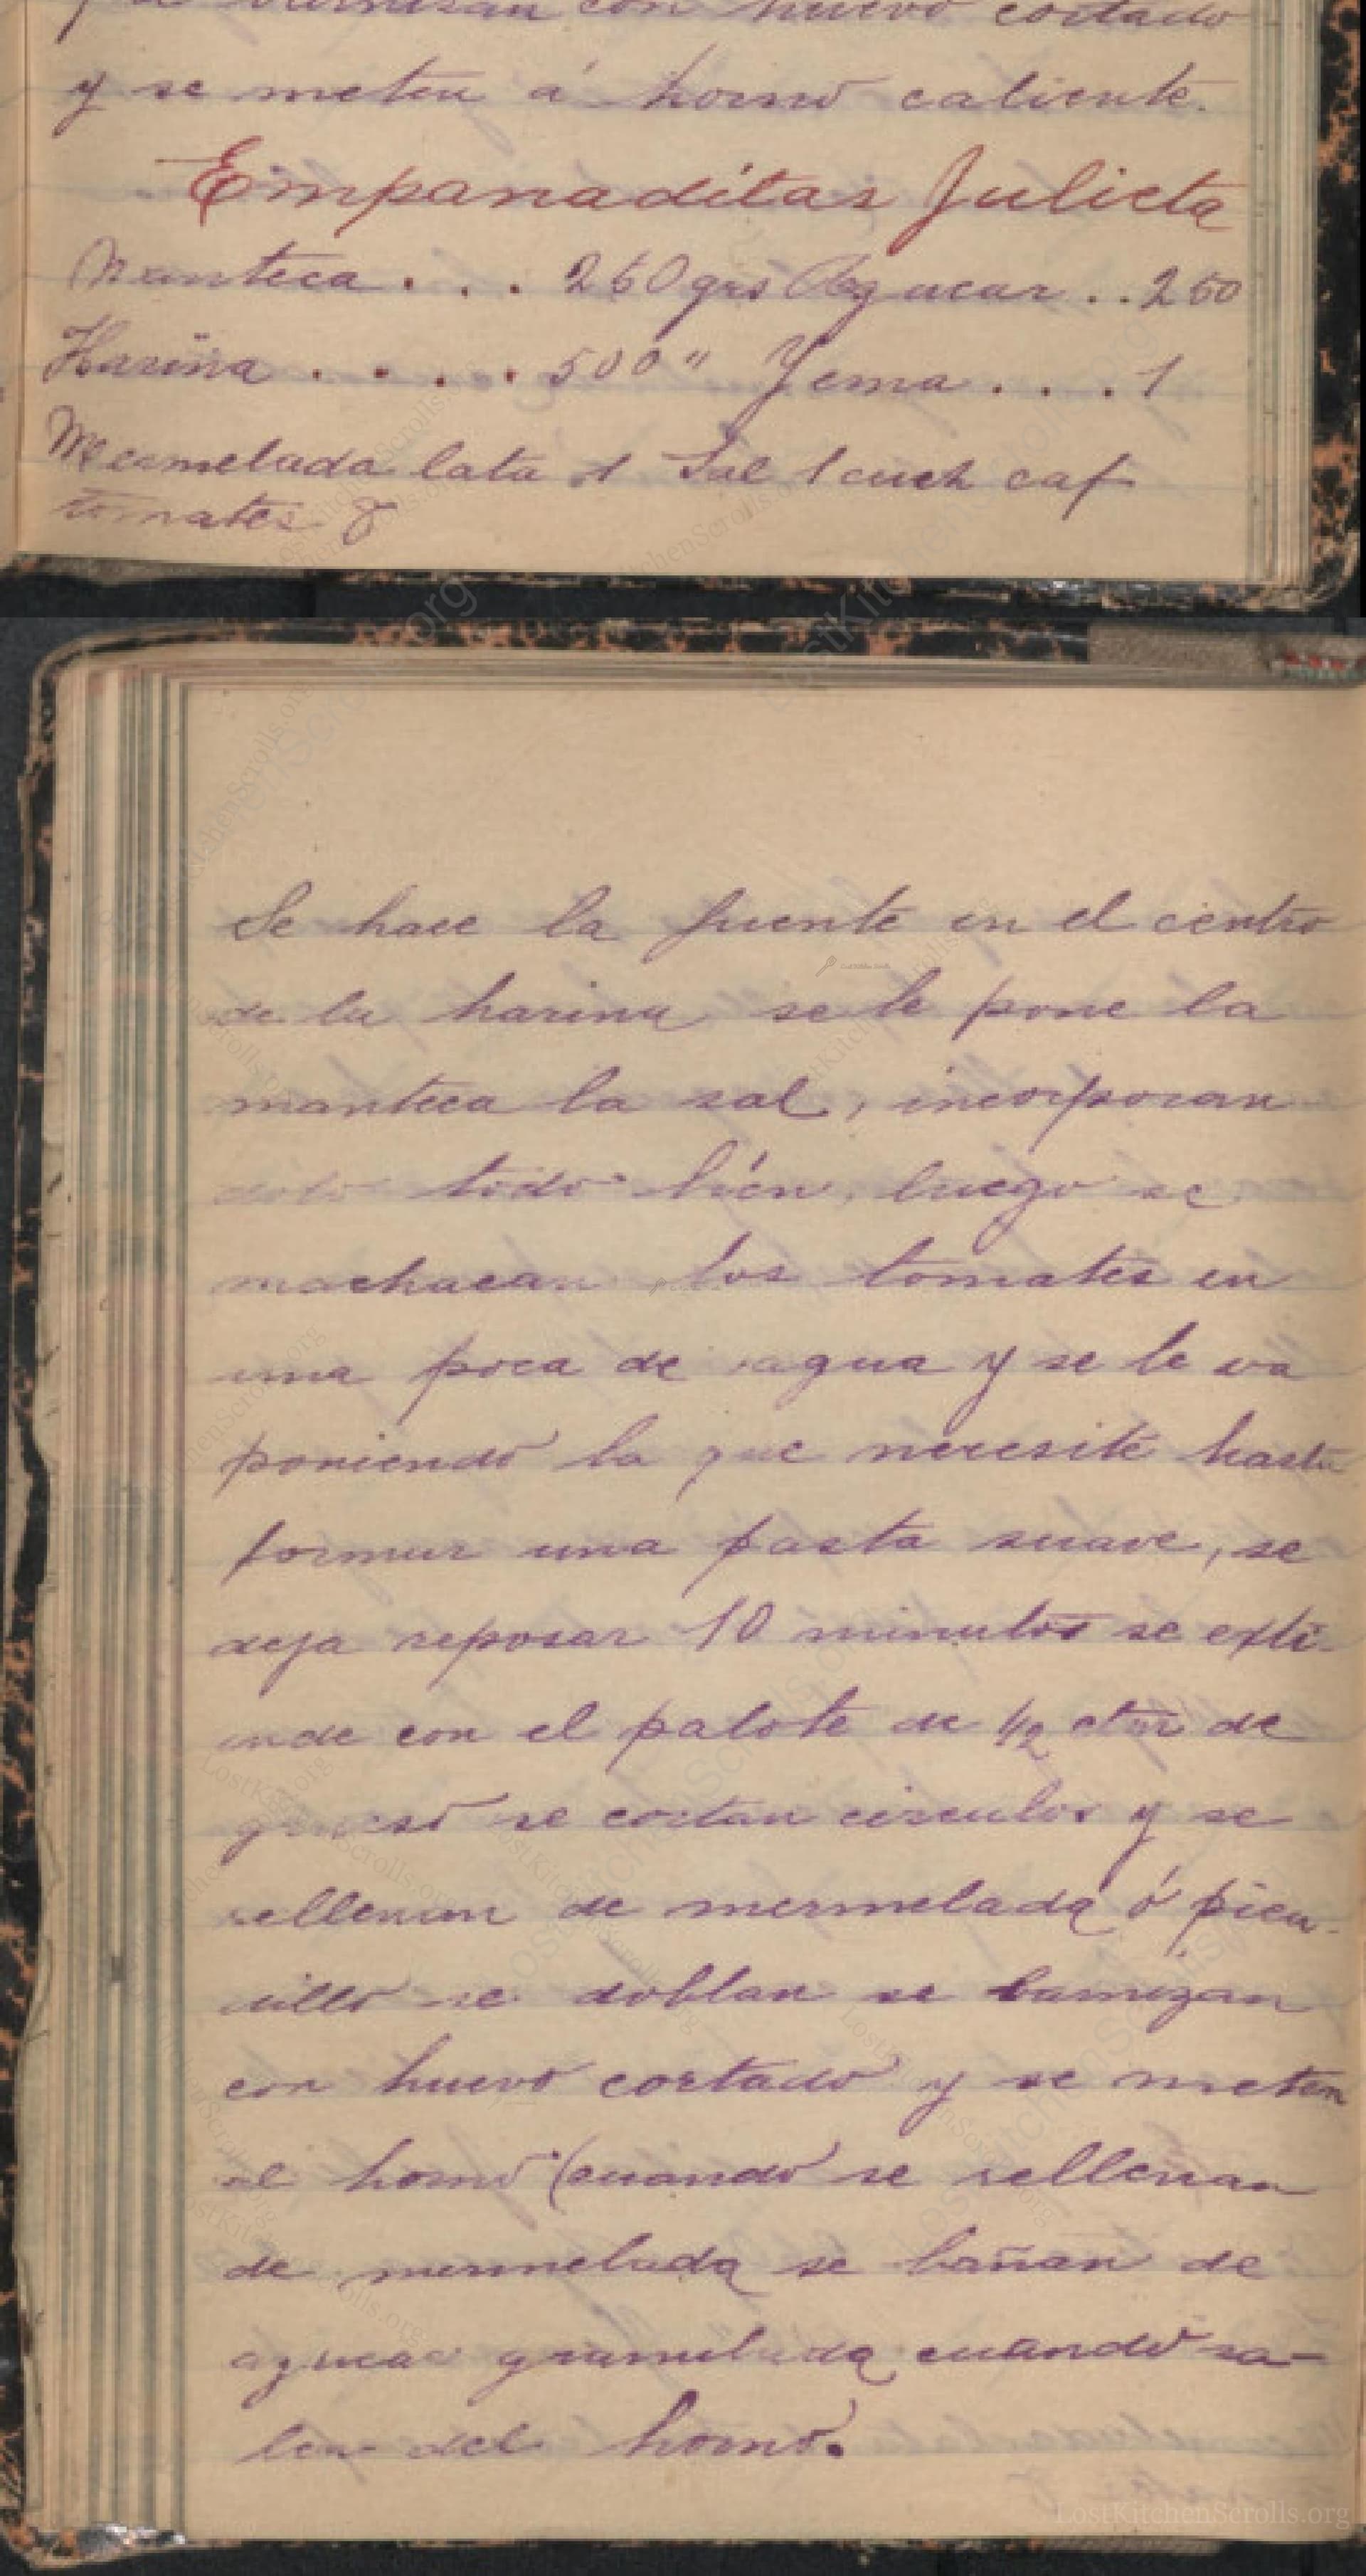 se barnizan con huevo cortado
y se meten á horno caliente.
Empanaditas Julieta
Manteca . . . 260 grs Azucar . . 260
Harina . . . . . 500 " Yema . . . . 1
Mermelada lata 1 Sal 1 cuch caf
tomates 8
Se hace la fuente en el centro
de la harina se le pone la
manteca la sal, incorporan
dolo todo bién, luego se
machacan los tomates en
una poca de agua y se le va
poniendo la que necesite hasta
formar una pasta suave, se
deja reposar 10 minutos se exti-
ende con el palote de 1/2 ctm de
grueso se cortan circulos y se
rellenan de mermelada ó pica-
dillo se doblan se barnizan
con huevo cortado y se meten
al horno (cuando se rellenan
de mermelada se bañan de
azucar granulada cuando sa-
len del horno.
LostKitchenScrolls.org